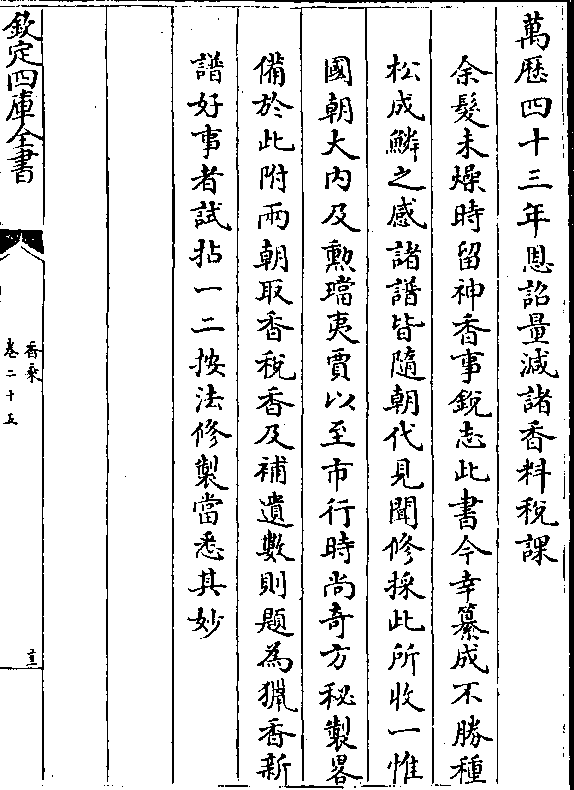 萬歷四十三年恩詔量減諸香料稅課
余髮未燥時留神香事銳志此書今幸纂成不勝種
松成鱗之感諸譜皆隨朝代見聞修採此所收一惟
國朝大内及勲璫夷賈以至市行時尚奇方秘製畧
備於此附兩朝取香稅香及補遺數則題為獵香新
譜好事者試拈一二按法修製當悉其妙
欽定四庫全書
香乘
卷二十五